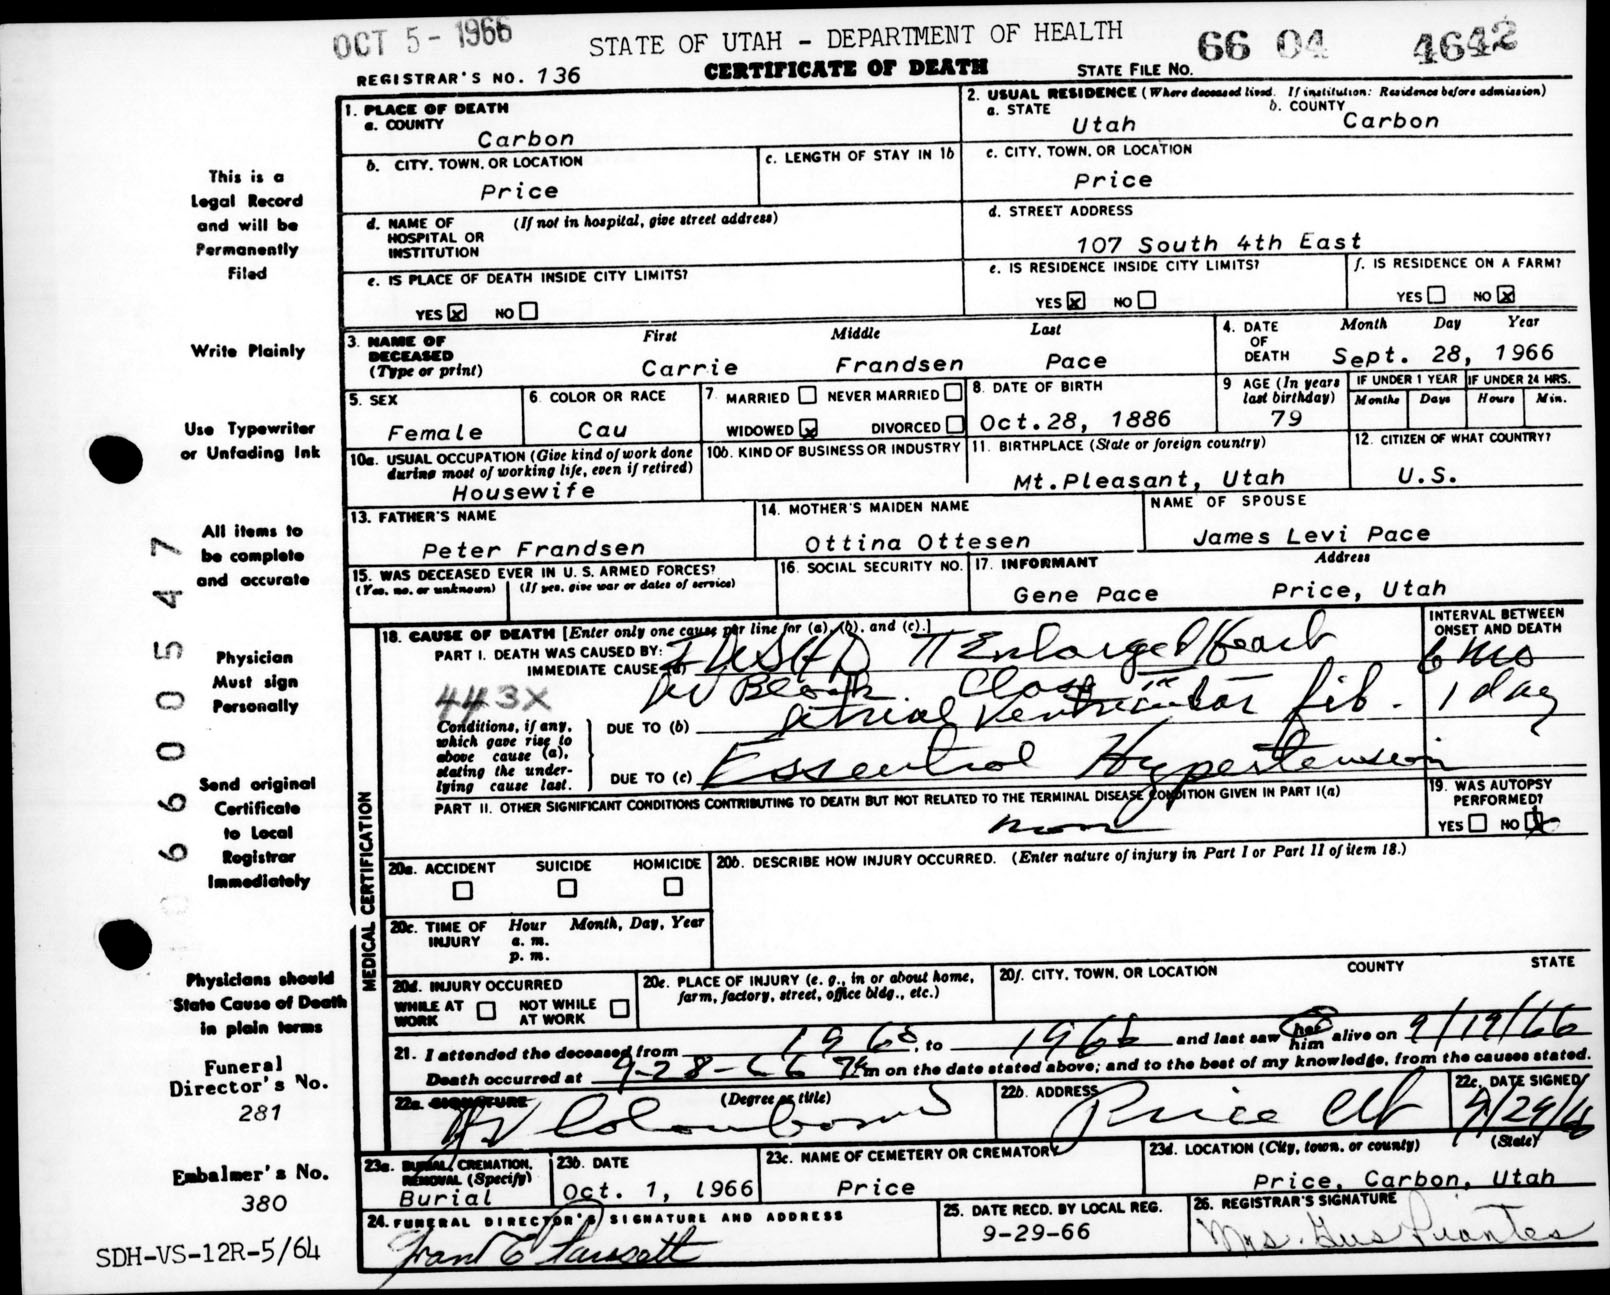 OCT 5 - 1966
STATE OF UTAH - DEPARTMENT OF HEALTH
66 04 4642
REGISTRAR'S NO. 136
CERTIFICATE OF DEATH
STATE FILE NO.
1. PLACE OF DEATH
a. COUNTY
Carbon
2. USUAL RESIDENCE (Where deceased lived. If institution: Residence before admission)
a. STATE
Utah
b. COUNTY
Carbon
b. CITY, TOWN, OR LOCATION
Price
c. LENGTH OF STAY IN 1b
c. CITY, TOWN, OR LOCATION
Price
d. NAME OF HOSPITAL OR INSTITUTION
(If not in hospital, give street address)
d. STREET ADDRESS
107 South 4th East
e. IS PLACE OF DEATH INSIDE CITY LIMITS?
YES x NO
e. IS RESIDENCE INSIDE CITY LIMITS?
YES x NO
f. IS RESIDENCE ON A FARM?
YES NO x
3. NAME OF DECEASED
(Type or print)
First Middle Last
Carrie Frandsen Pace
4. DATE OF DEATH
Month Day Year
Sept. 28, 1966
5. SEX
Female
6. COLOR OR RACE
Cau
7. MARRIED NEVER MARRIED
WIDOWED x DIVORCED
8. DATE OF BIRTH
Oct.28, 1886
9 AGE (In years last birthday)
79
IF UNDER 1 YEAR
Months Days
IF UNDER 24 HRS.
Hours Min.
10a. USUAL OCCUPATION (Give kind of work done during most of working life, even if retired)
Housewife
10b. KIND OF BUSINESS OR INDUSTRY
11. BIRTHPLACE (State or foreign country)
Mt.Pleasant, Utah
12. CITIZEN OF WHAT COUNTRY?
U.S.
13. FATHER'S NAME
Peter Frandsen
14. MOTHER'S MAIDEN NAME
Ottina Ottesen
NAME OF SPOUSE
James Levi Pace
15. WAS DECEASED EVER IN U. S. ARMED FORCES?
(Yes, no, or unknown) (If yes, give war or dates of service)
16. SOCIAL SECURITY NO.
17. INFORMANT Address
Gene Pace Price, Utah
MEDICAL CERTIFICATION
18. CAUSE OF DEATH [Enter only one cause per line for (a), (b), and (c).]
PART I. DEATH WAS CAUSED BY:
IMMEDIATE CAUSE (a)
Enlarged Heart
INTERVAL BETWEEN ONSET AND DEATH
6 mo
443X
Block.
1 day
Conditions, if any, which gave rise to above cause (a), stating the underlying cause last.
DUE TO (b)
Atrial Ventricular fib.
DUE TO (c)
Essential Hypertension
PART II. OTHER SIGNIFICANT CONDITIONS CONTRIBUTING TO DEATH BUT NOT RELATED TO THE TERMINAL DISEASE CONDITION GIVEN IN PART I(a)
19. WAS AUTOPSY PERFORMED?
YES NO x
20a. ACCIDENT SUICIDE HOMICIDE
20b. DESCRIBE HOW INJURY OCCURRED. (Enter nature of injury in Part I or Part II of item 18.)
20c. TIME OF INJURY
Hour Month, Day, Year
a. m.
p. m.
20d. INJURY OCCURRED
WHILE AT WORK NOT WHILE AT WORK
20e. PLACE OF INJURY (e. g., in or about home, farm, factory, street, office bldg., etc.)
20f. CITY, TOWN, OR LOCATION COUNTY STATE
21. I attended the deceased from to 1966 and last saw her him alive on 9/19/66
Death occurred at 9-28-66 m on the date stated above; and to the best of my knowledge, from the causes stated.
22a. SIGNATURE
(Degree or title)
22b. ADDRESS
Price Ut
22c. DATE SIGNED
9/29/66
23a. BURIAL, CREMATION, REMOVAL (Specify)
Burial
23b. DATE
Oct. 1, 1966
23c. NAME OF CEMETERY OR CREMATORY
Price
23d. LOCATION (City, town, or county) (State)
Price, Carbon, Utah
24. FUNERAL DIRECTOR'S SIGNATURE AND ADDRESS
25. DATE RECD. BY LOCAL REG.
9-29-66
26. REGISTRAR'S SIGNATURE
Mrs. Gus
This is a
Legal Record
and will be
Permanently
Filed
Write Plainly
Use Typewriter
or Unfading Ink
All items to
be complete
and accurate
Physician
Must sign
Personally
Send original
Certificate
to Local
Registrar
Immediately
Physicians should
State Cause of Death
in plain terms
Funeral
Director's No.
281
Embalmer's No.
380
SDH-VS-12R-5/64
066000547